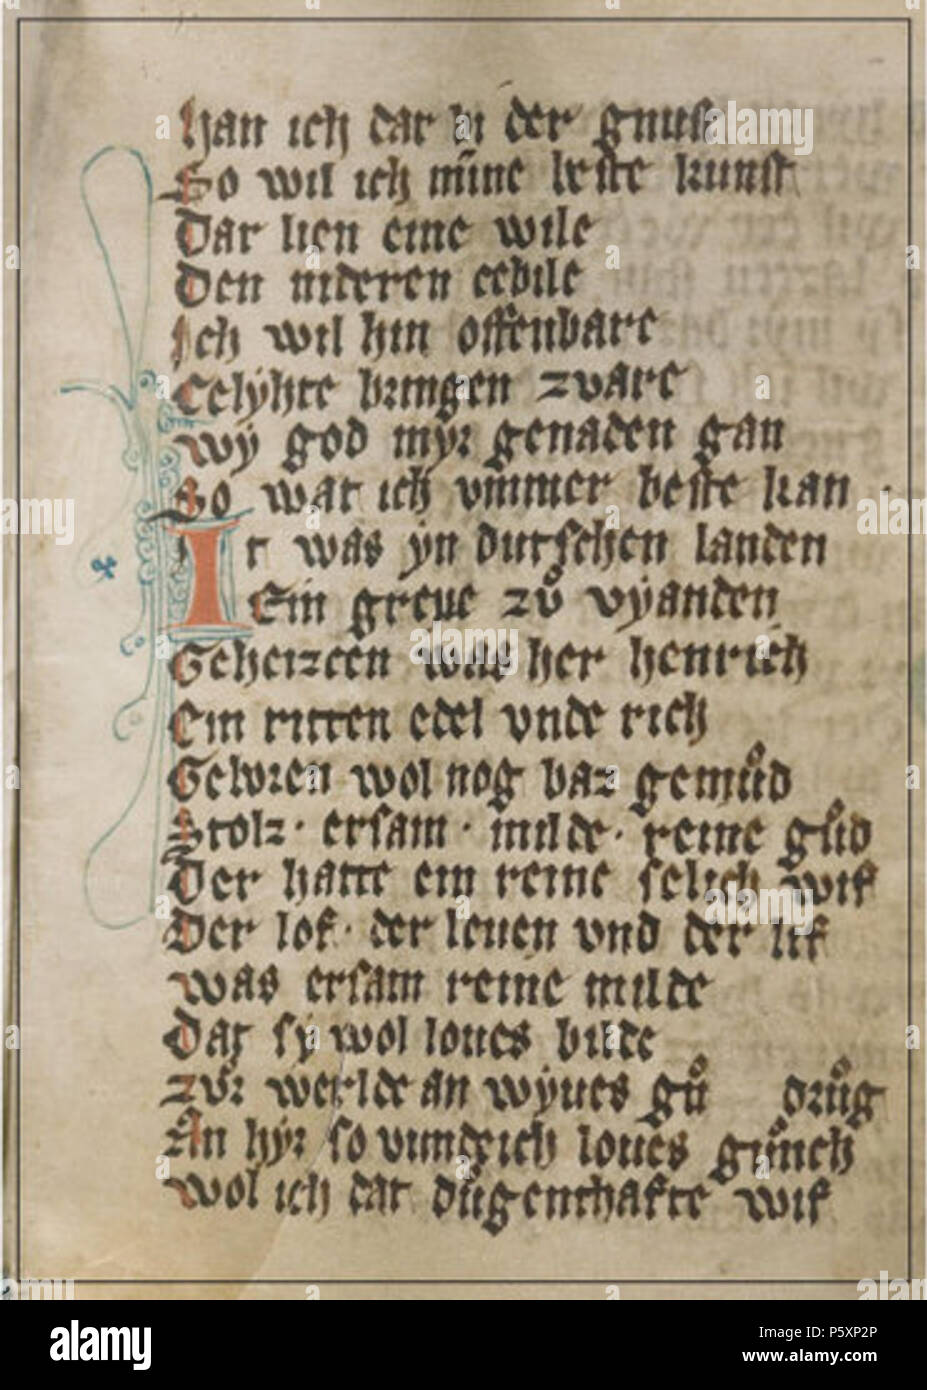 han ich dar in der gnust
So wil ich mine beste kunst
Dar lien eine wile
Den nideren ecdile
Ich wil hin offenbare
Celyhte bringen zvare
wy god myr genaden gan
So war ich vmmer beste kan
Ir was yn dutschen landen
Ein greue zů vyanden
Geheizeen was her henrich
Ein ritten edel vnde rich
Geboren wol nog baz gemůd
Stolz · ersam · milde · reine gůd
Der hatte ein reine selich wif
Der lof · der leuen vnd der lif
was ersam reine milde
Daz sy wol loues bilde
zůr werlde an wyues gů drůg
An hyr so vundeich loues gůnch
Wol ich dat důgenthafte wif
alamy
www.alamy.com
Image ID: P5XP2P